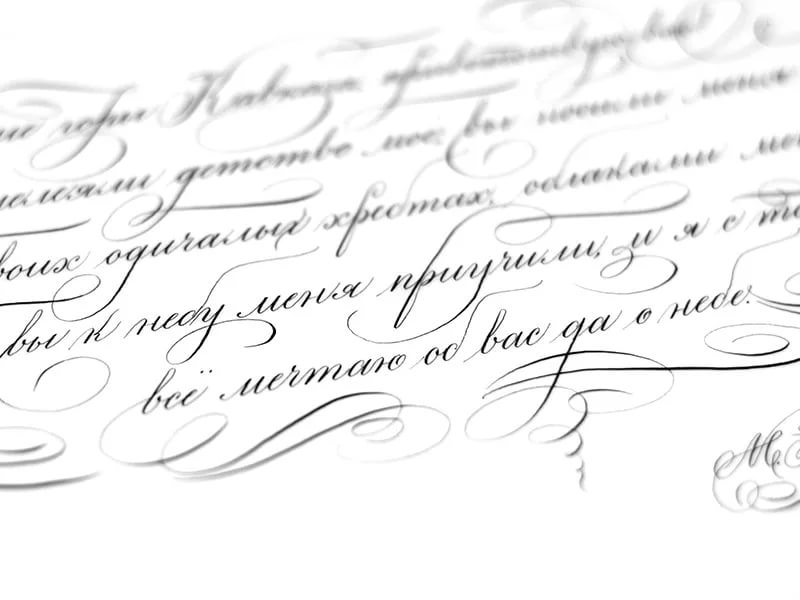 ие горы Кавказа, приветствую вас!
лелеяли детство мое; вы носили меня
воих одичалых хребтах, облаками ме
вы к небу меня приучили, и я с то
всё мечтаю об вас да о небе.
М.